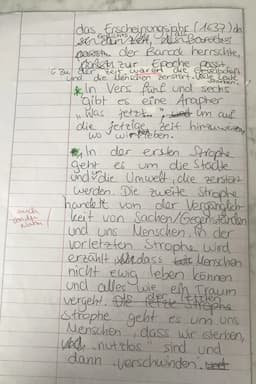 das Erscheinungsjahr (1637) da
zu der Zeit, des Barockes
der Barock herrschte,
zur Epoche passt.
Zu der Zeit waren die Gesellschaft
und die Menschen zerstört. Viele Leute
starben.
In Vers fünf und sechs
gibt es eine Anapher
"Was jetzt..." um auf
die jetzige Zeit hinzuweisen,
wo wir leben.
In der ersten Strophe
geht es um die Städte
und die Umwelt, die zerstört
werden. Die zweite Strophe
handelt von der Vergänglich-
keit von Sachen/Gegenständen
und uns Menschen. In der
vorletzten Strophe wird
erzählt dass Menschen
nicht ewig leben können
und alles wie ein Traum
vergeht. Die der letzten
Strophe geht es um uns
Menschen, dass wir sterben,
"nutzlos" sind und
dann verschwinden.
auch
Natur